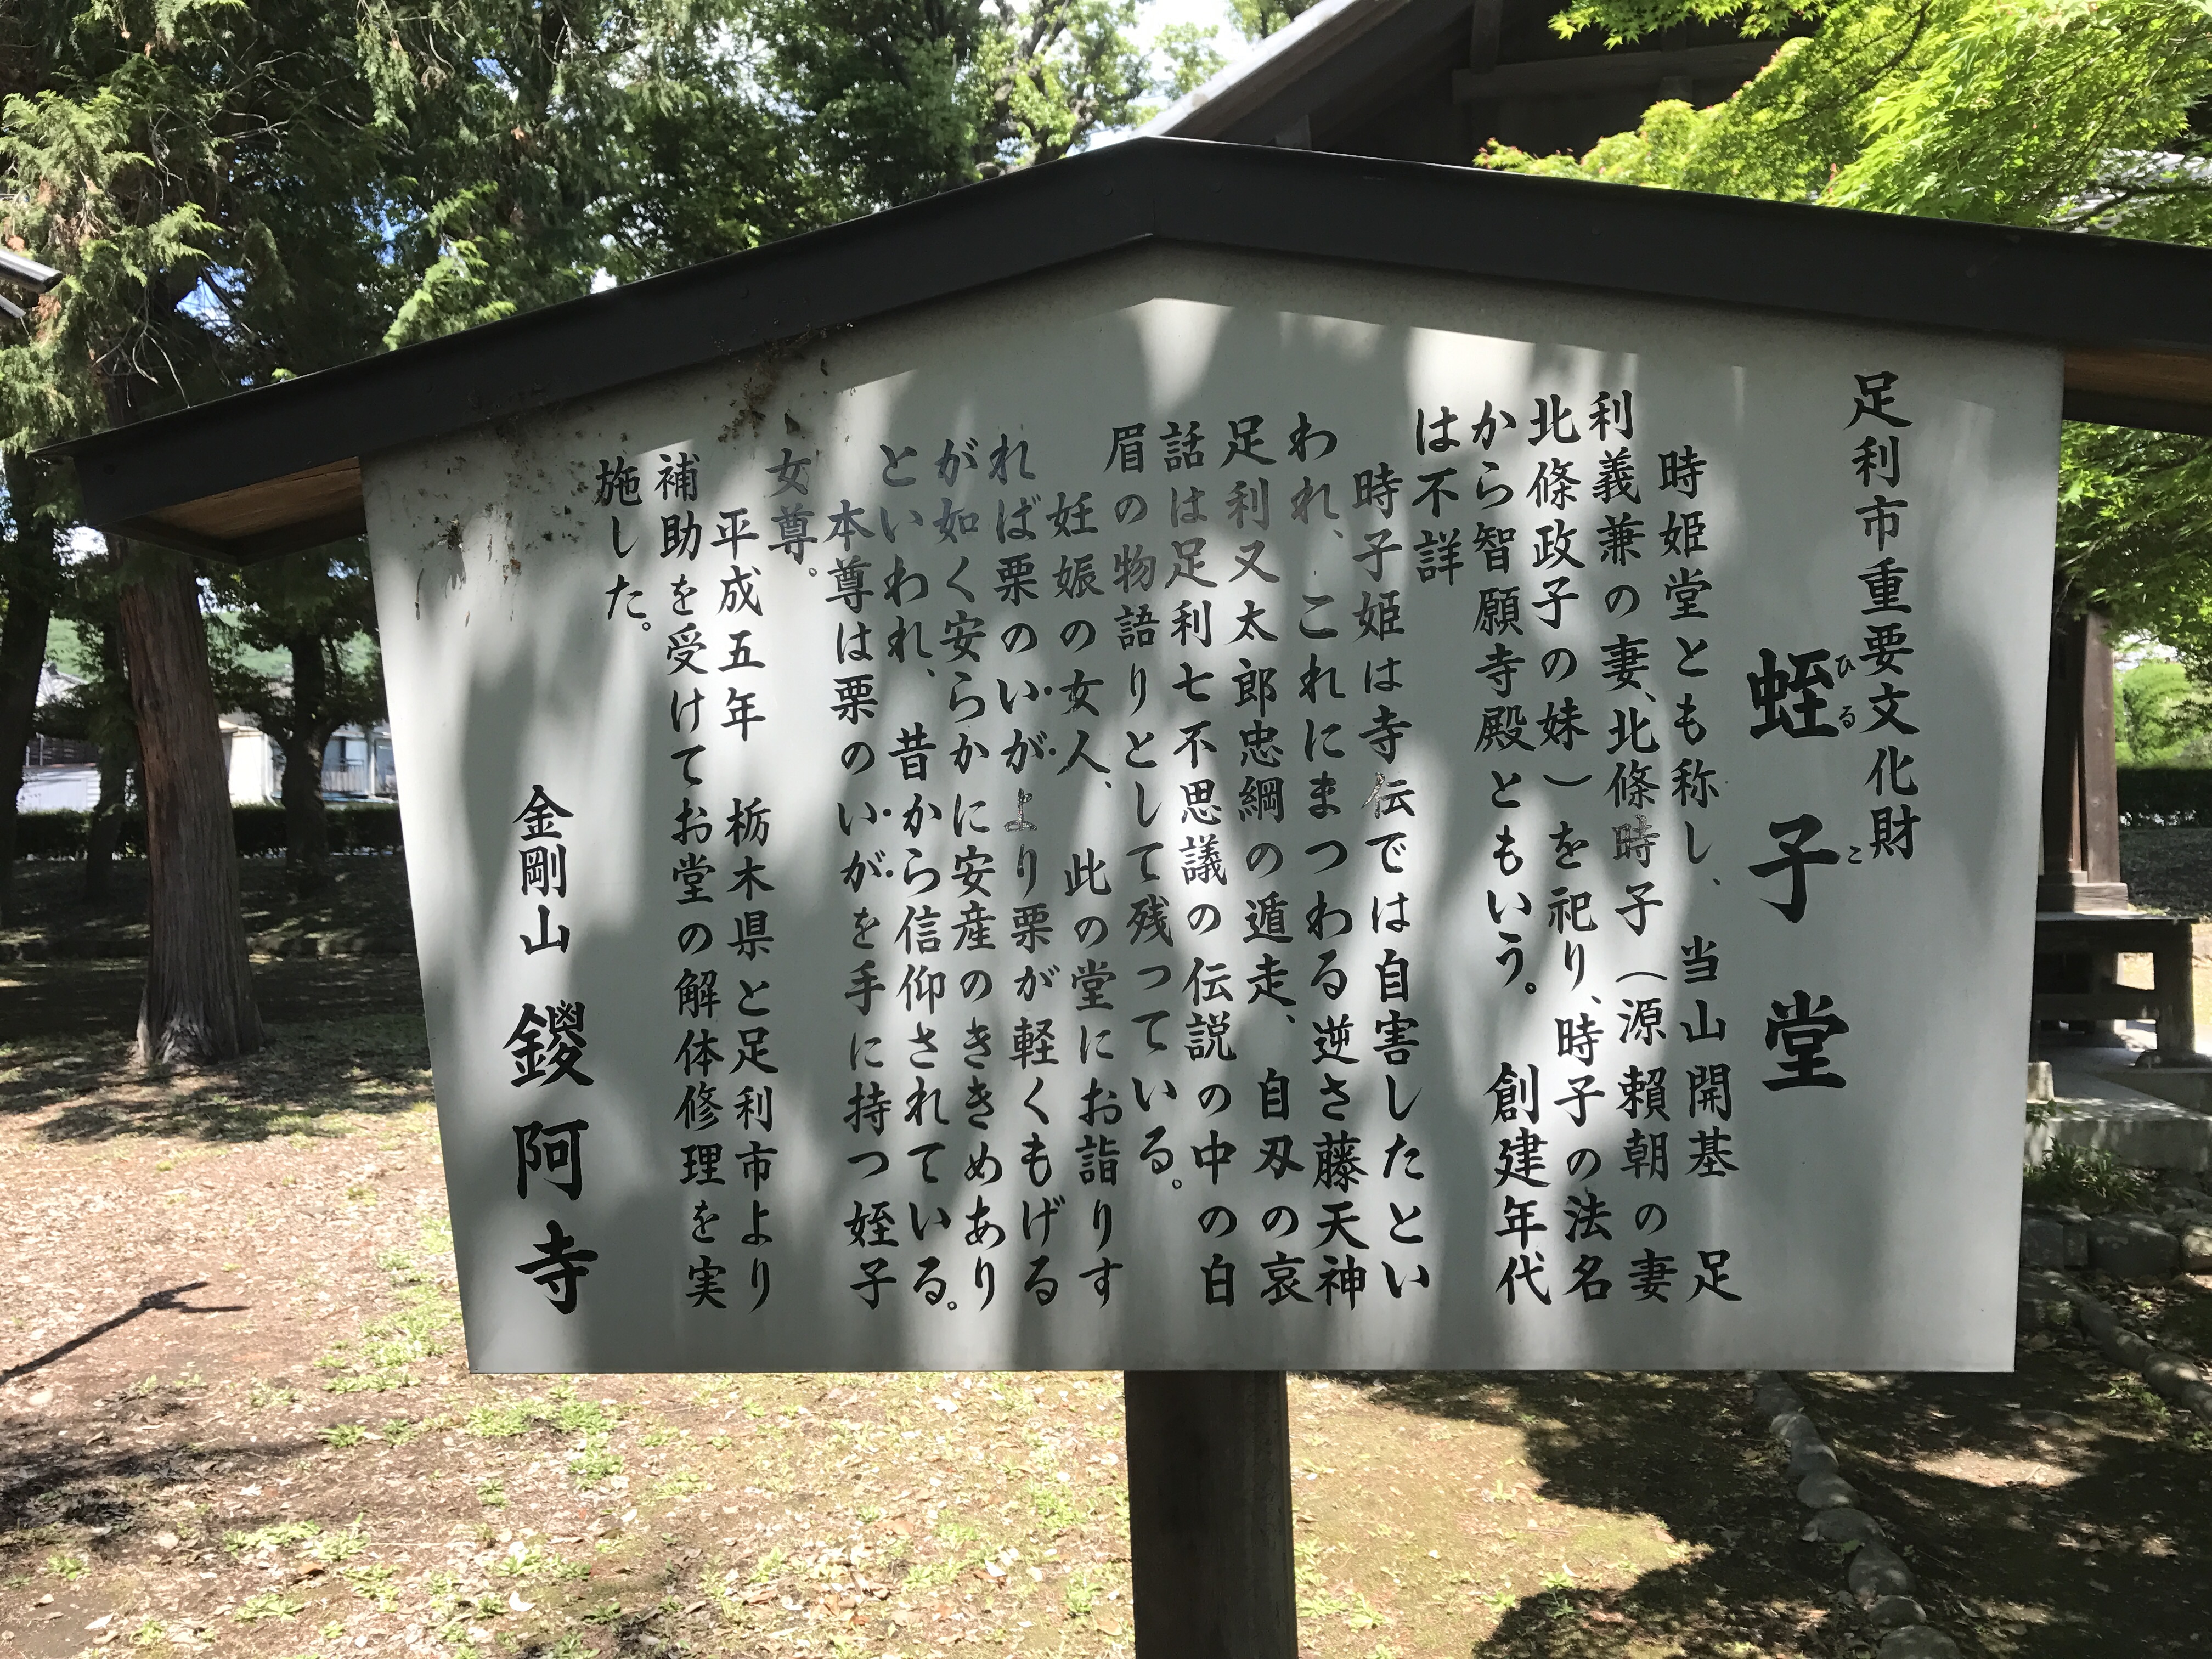 足利市重要文化財
蛭子堂
ひるこ
時姫堂とも称し、当山開基 足
利義兼の妻、北條時子（源頼朝の妻
北條政子の妹）を祀り、時子の法名
から智願寺殿ともいう。 創建年代
は不詳
時子姫は寺伝では自害したとい
われ、これにまつわる逆さ藤天神
足利又太郎忠綱の遁走、自刃の哀
話は足利七不思議の伝説の中の白
眉の物語りとして残っている。
妊娠の女人、此の堂にお詣りす
れば栗のいがより栗が軽くもげる
が如く安らかに安産のききめあり
といわれ、昔から信仰されている。
本尊は栗のいがを手に持つ姪子
女尊。
平成五年 栃木県と足利市より
補助を受けてお堂の解体修理を実
施した。
金剛山 鑁阿寺